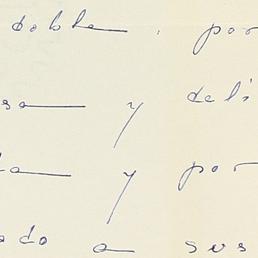 doble, por
sa y deli
da y por
ado a sus